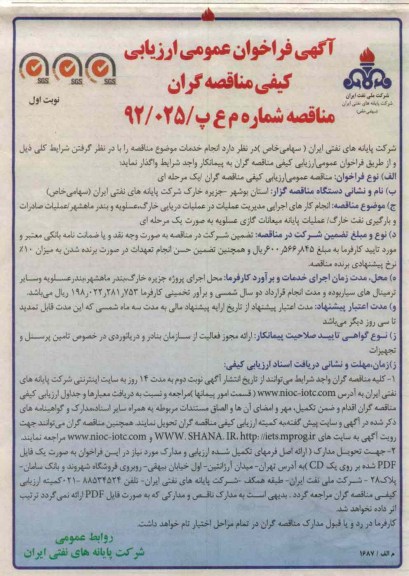 آگهی فراخوان عمومی ارزیابی
کیفی مناقصه گران
مناقصه شماره م ع پ/۹۲/۰۲۵
نوبت اول
SGS SGS SGS
شرکت ملی نفت ایران
شرکت پایانه های نفتی ایران
(سهامی خاص)
شرکت پایانه های نفتی ایران ( سهامی‌خاص )در نظر دارد انجام خدمات موضوع مناقصه را با در نظر گرفتن شرایط کلی ذیل
و از طریق فراخوان عمومی‌ارزیابی کیفی مناقصه گران به پیمانکار واجد شرایط واگذار نماید:
الف) نوع فراخوان: مناقصه عمومی‌ارزیابی کیفی مناقصه گران ایک مرحله ای
ب) نام و نشانی دستگاه مناقصه گزار: استان بوشهر -جزیره خارک شرکت پایانه های نفتی ایران (سهامی‌خاص)
ج) موضوع مناقصه: انجام کار های اجرایی مدیریت عملیات در عملیات دریایی خارگ،عسلویه و بندر ماهشهر/عملیات صادرات
و بارگیری نفت خارگ/ عملیات پایانه میعانات گازی عسلویه به صورت یک مرحله ای
د) نوع و مبلغ تضمین شرکت در مناقصه: تضمین شرکت در مناقصه به صورت وجه نقد و یا ضمانت نامه بانکی معتبر و
مورد تایید کارفرما به مبلغ ۶۰۰٫۵۶۶٫۸۴۵ریال و همچنین تضمین حسن انجام تعهدات در صورت برنده شدن به میزان ۱۰٪
نرخ پیشنهادی برنده مناقصه.
ه) محل، مدت زمان اجرای خدمات و برآورد کارفرما: محل اجرای پروژه جزیره خارگ،بندر ماهشهر،بندرعسلویه وسایر
ترمینال های سیاربوده و مدت انجام قرارداد دو سال شمسی و برآور تخمینی کارفرما ۱۹۸٫۰۲۲٫۲۸۱٫۷۵۳ ریال می‌باشد.
و) مدت اعتبار پیشنهاد: مدت اعتبار پیشنهاد از تاریخ ارایه پیشنهاد مالی به مدت سه ماه شمسی که این مدت قابل تمدید
تا سی روز دیگر می‌باشد
ز) نوع گواهی تایید صلاحیت پیمانکار: ارائه مجوز فعالیت از سازمان بنادر و دریانوردی در خصوص تامین پرسنل و
تجهیزات
ز)زمان،مهلت و نشانی دریافت اسناد ارزیابی کیفی:
۱- کلیه مناقصه گران واجد شرایط می‌توانند از تاریخ انتشار آگهی نوبت دوم به مدت ۱۴ روز به سایت اینترنتی شرکت پایانه های
نفتی ایران به آدرس www.nioc-iotc.com ( قسمت امور پیمانها )مراجعه و نسبت به دریافت معیارها و جداول ارزیابی کیفی
مناقصه گران اقدام و ضمن تکمیل، مهر و امضای آن ها و الصاق مستندات مربوطه به همراه سایر اسناد،مدارک و گواهینامه های
ذکر شده در آگهی و سایت پیش گفته،به کمیته ارزیابی کیفی مناقصه گران تحویل نمایند. همچنین مناقصه گران می‌توانند جهت
رویت آگهی به سایت های WWW.SHANA.IR، http://iets.mporg.ir و www.nioc-iotc.com مراجعه نمایند.
۲-جهت تحویل مدارک ( ارائه اصل فرمهای تکمیل شده ارزیابی و مدارک مورد نیاز در این فراخوان به صورت یک فایل
PDF شده بر روی یک CD )به آدرس تهران- میدان آرژانتین- اول خیابان بیهقی- روبروی فروشگاه شهروند و بانک سامان-
پلاک۲۸ - شرکت ملی نفت ایران- طبقه همکف -شرکت پایانه های نفتی ایران- تلفن ۸۸۵۳۴۵۲۴ -۰۲۱کمیته ارزیابی
کیفی‌مناقصه گران مراجعه گردد . بدیهی است به مدارک ناقص و مدارکی که به صورت فایل PDF ارائه نمی‌گردد ترتیب
اثر داده نخواهد شد.
کارفرما در رد و یا قبول مدارک مناقصه گران در تمام مراحل اختیار تام خواهد داشت.
روابط عمومی
شرکت پایانه های نفتی ایران
م الف / ۱۶۸۷